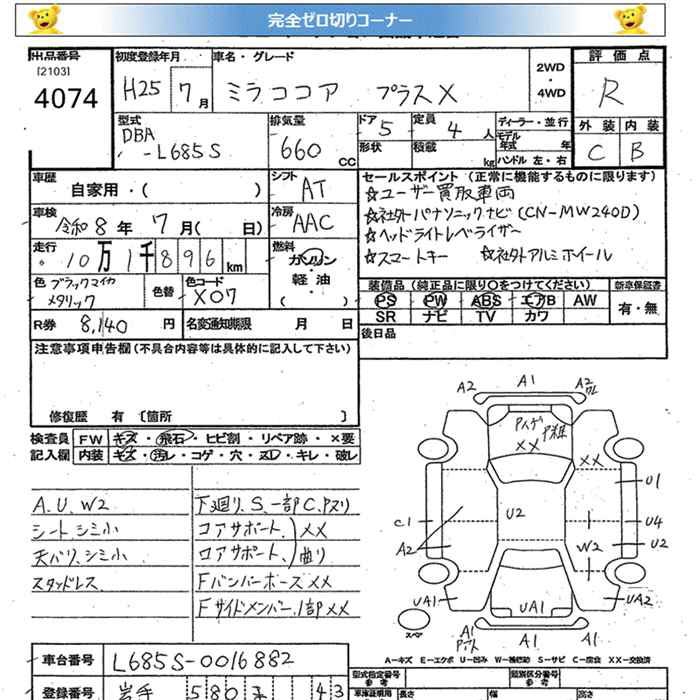 完全ゼロ切りコーナー
出品番号
[2103]
4074
初度登録年月
H25 7 月
車名・グレード
ミラココア プラスX
2WD
・
4WD
評価点
R
外装 内装
C B
型式
DBA
-L685S
排気量
660 cc
ドア 5
定員 4 人
形状
積載 kg
ディーラー・並行
モデル
年式 年
ハンドル 左・右
車歴
自家用・( )
シフト
AT
車検
令和8年 7月( 日)
冷房
AAC
走行
10万1千896 km
燃料
ガソリン
・
軽油
色 ブラックマイカ
メタリック
色替
色コード
X07
R券 8,140 円
名変通知期限 月 日
セールスポイント(正常に機能するものに限ります)
☆ユーザー買取車両
☆社外パナソニックナビ(CN-MW240D)
☆ヘッドライトレベライザー
☆スマートキー ☆社外アルミホイール
装備品(純正品に限り○をつけてください)
新車保証書
PS PW ABS エアB AW
SR ナビ TV カワ
有・無
後日品
注意事項申告欄(不具合内容等は具体的に記入して下さい)
修復歴 有 〔箇所 〕
検査員 FW キズ・飛石・ヒビ割・リペア跡・×要
記入欄 内装 キズ・汚レ・コゲ・穴・スレ・キレ・破レ
A.U.W2
シート.シミ小
天バリ.シミ小
スタッドレス
下廻り.S.一部C.アスリ
コアサポート.XX
ロアサポート.曲り
FバンパーホースXX
Fサイドメンバー.1部XX
A2 A1 A2
XX
XX
U1
C1
U2
U4
A2
W2
U2
UA1
UA1
UA2
スペア
A1 A1 A1
A-キズ E-エクボ U-凹み W-補修跡 S-サビ C-腐食 XX-交換済
車台番号 L685S-0016882
登録番号 岩手 580 43
型式指定番号
参考
類別区分番号
参考
車庫証明用 長さ 幅 高さ